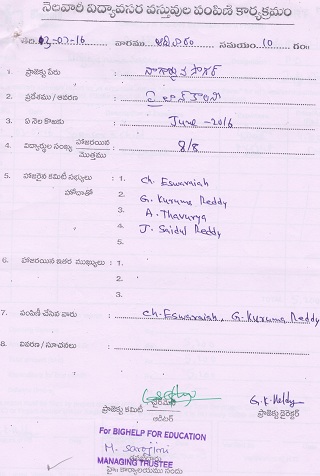 నెలవారీ విద్యావసర వస్తువుల పంపిణీ కార్యక్రమం
తేది. 03-07-16 వారము ఆదివారం సమయం 10 గం॥
1. ప్రాజెక్టు పేరు : నాగార్జున సాగర్
2. ప్రదేశము / ఆవరణ : పైలాన్ కాలనీ
3. ఏ నెల కొఱకు : June - 2016
4. విద్యార్థుల సంఖ్య హాజరయిన / మొత్తము : 8/8
5. హాజరైన కమిటీ సభ్యులు : 1. Ch. Eswaraiah
హోదాతో 2. G. Kuruma Reddy
3. A. Thavurya
4. J. Saidul Reddy
5.
6. హాజరయిన ఇతర ముఖ్యులు : 1.
2.
3.
7. పంపిణీ చేసిన వారు : Ch. Eswaraiah, G. Kuruma Reddy
8. వివరణ / సూచనలు :
ప్రాజెక్టు కమిటీ ఛైర్మన్
ఆడిటర్
G.K. Reddy
ప్రాజెక్టు డైరెక్టర్
For BIGHELP FOR EDUCATION
M. Sarojini
MANAGING TRUSTEE